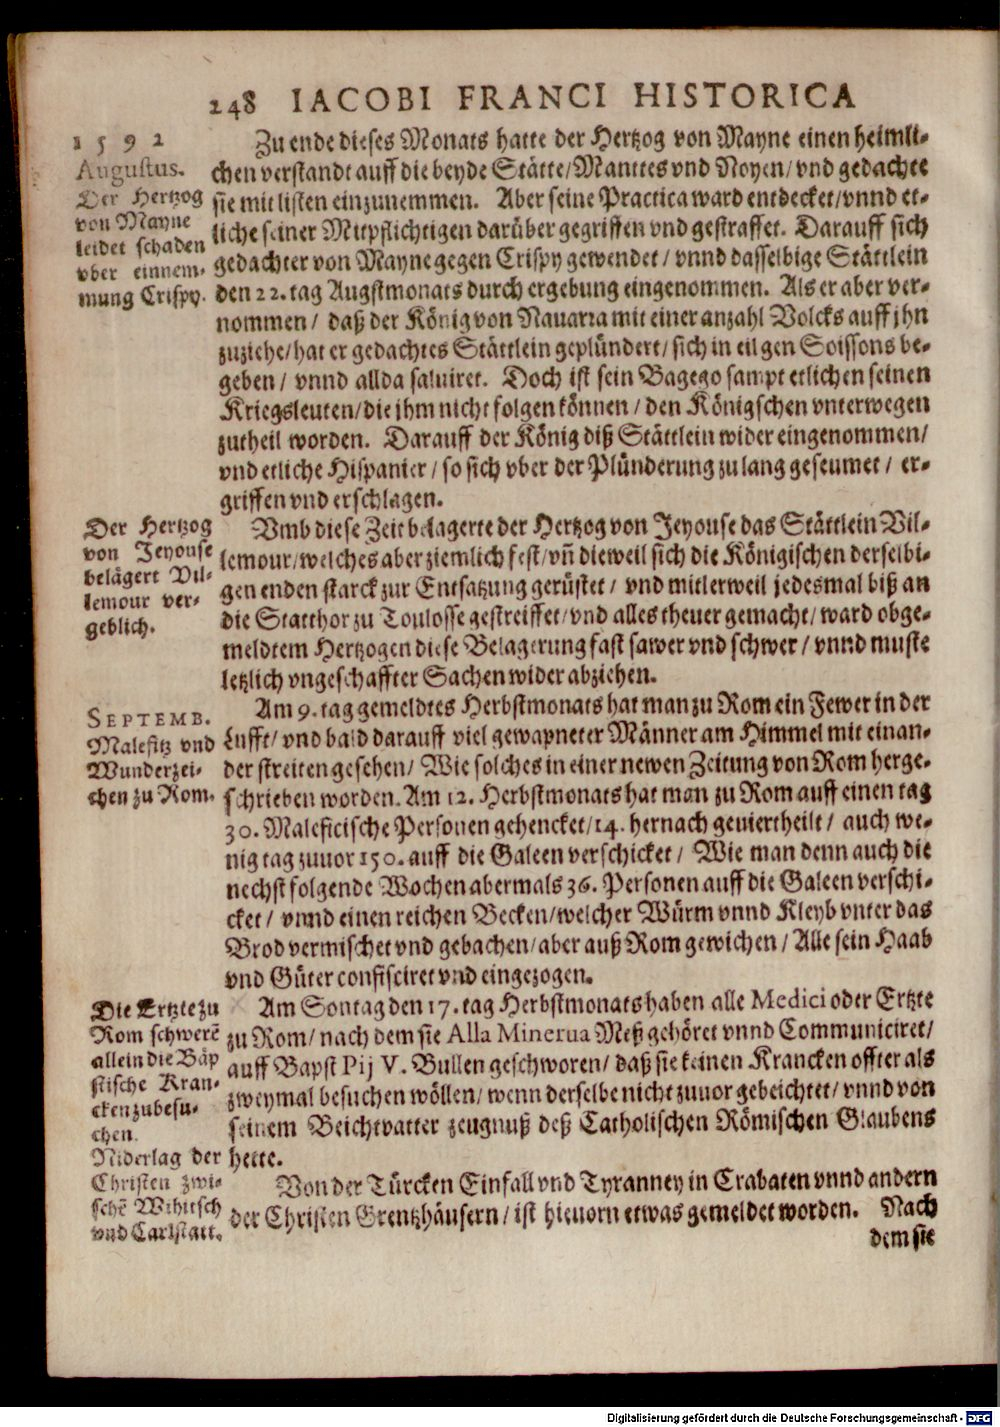 248 IACOBI FRANCI HISTORICA
1592
Augustus.
Der Hertzog
von Mayne
leidet schaden
vber einnem-
mung Crispy.
Zu ende dieses Monats hatte der Hertzog von Mayne einen heimli-
chen verstandt auff die beyde Stätte/Manttes vnd Noyen/vnd gedachte
sie mit listen einzunemmen. Aber seine Practica ward entdecket/vnnd et-
liche seiner Mitpflichtigen darüber gegriffen vnd gestraffet. Darauff sich
gedachter von Mayne gegen Crispy gewendet/vnnd dasselbige Stättlein
den 22. tag Augstmonats durch ergebung eingenommen. Als er aber ver-
nommen/ daß der König von Nauarra mit einer anzahl Volcks auff jhn
zuziehe/hat er gedachtes Stättlein geplündert/sich in eil gen Soissons be-
geben/ vnnd allda saluiret. Doch ist sein Bagego sampt etlichen seinen
Kriegsleuten/die ihm nicht folgen können/den Königschen vnterwegen
zutheil worden. Darauff der König diß Stättlein wider eingenommen/
vnd etliche Hispanier/so sich vber der Plünderung zu lang geseumet/ er-
griffen vnd erschlagen.
Der Hertzog
von Jeyouse
belägert Vil-
lemour ver-
geblich.
Vmb diese Zeit belagerte der Hertzog von Jeyouse das Stättlein Vil-
lemour/welches aber ziemlich fest/vñ dieweil sich die Königischen derselbi-
gen enden starck zur Entsatzung gerüstet/ vnd mitlerweil jedesmal biß an
die Statthor zu Toulosse gestreiffet/vnd alles theuer gemacht/ward obge-
meldtem Hertzogen diese Belagerung fast sawer vnd schwer/vnnd muste
letzlich vngeschaffter Sachen wider abziehen.
SEPTEMB.
Malefitz vnd
Wunderzei-
chen zu Rom.
Am 9. tag gemeldtes Herbstmonats hat man zu Rom ein Fewer in der
Lufft/vnd bald darauff viel gewapneter Männer am Himmel mit einan-
der streiten gesehen/ Wie solches in einer newen Zeitung von Rom herge-
schrieben worden. Am 12. Herbstmonats hat man zu Rom auff einen tag
30. Maleficische Personen gehencket/14. hernach geuiertheilt/ auch we-
nig tag zuuor 150. auff die Galeen verschicket/ Wie man denn auch die
nechst folgende Wochen abermals 36. Personen auff die Galeen verschi-
cket/ vnnd einen reichen Becken/welcher Würm vnnd Kleyb vnter das
Brod vermischet vnd gebachen/aber auß Rom gewichen/Alle sein Haab
vnd Güter confisciret vnd eingezogen.
Die Ertzte zu
Rom schwerẽ
allein die Bäp
stische Kran-
cken zubesu-
chen.
Am Sontag den 17. tag Herbstmonats haben alle Medici oder Ertzte
zu Rom/nach dem sie Alla Minerua Meß gehöret vnnd Communiciret/
auff Bapst Pij V. Bullen geschworen/ daß sie keinen Krancken offter als
zweymal besuchen wöllen/wenn derselbe nicht zuuor gebeichtet/vnnd von
seinem Beichtvatter zeugnuß deß Catholischen Römischen Glaubens
hette.
Niderlag der
Christen zwi-
schẽ Wihitsch
vnd Carlstatt.
Von der Türcken Einfall vnd Tyranney in Crabaten vnnd andern
der Christen Grentzhäusern/ist hieuorn etwas gemeldet worden. Nach
dem sie
Digitalisierung gefördert durch die Deutsche Forschungsgemeinschaft - DFG